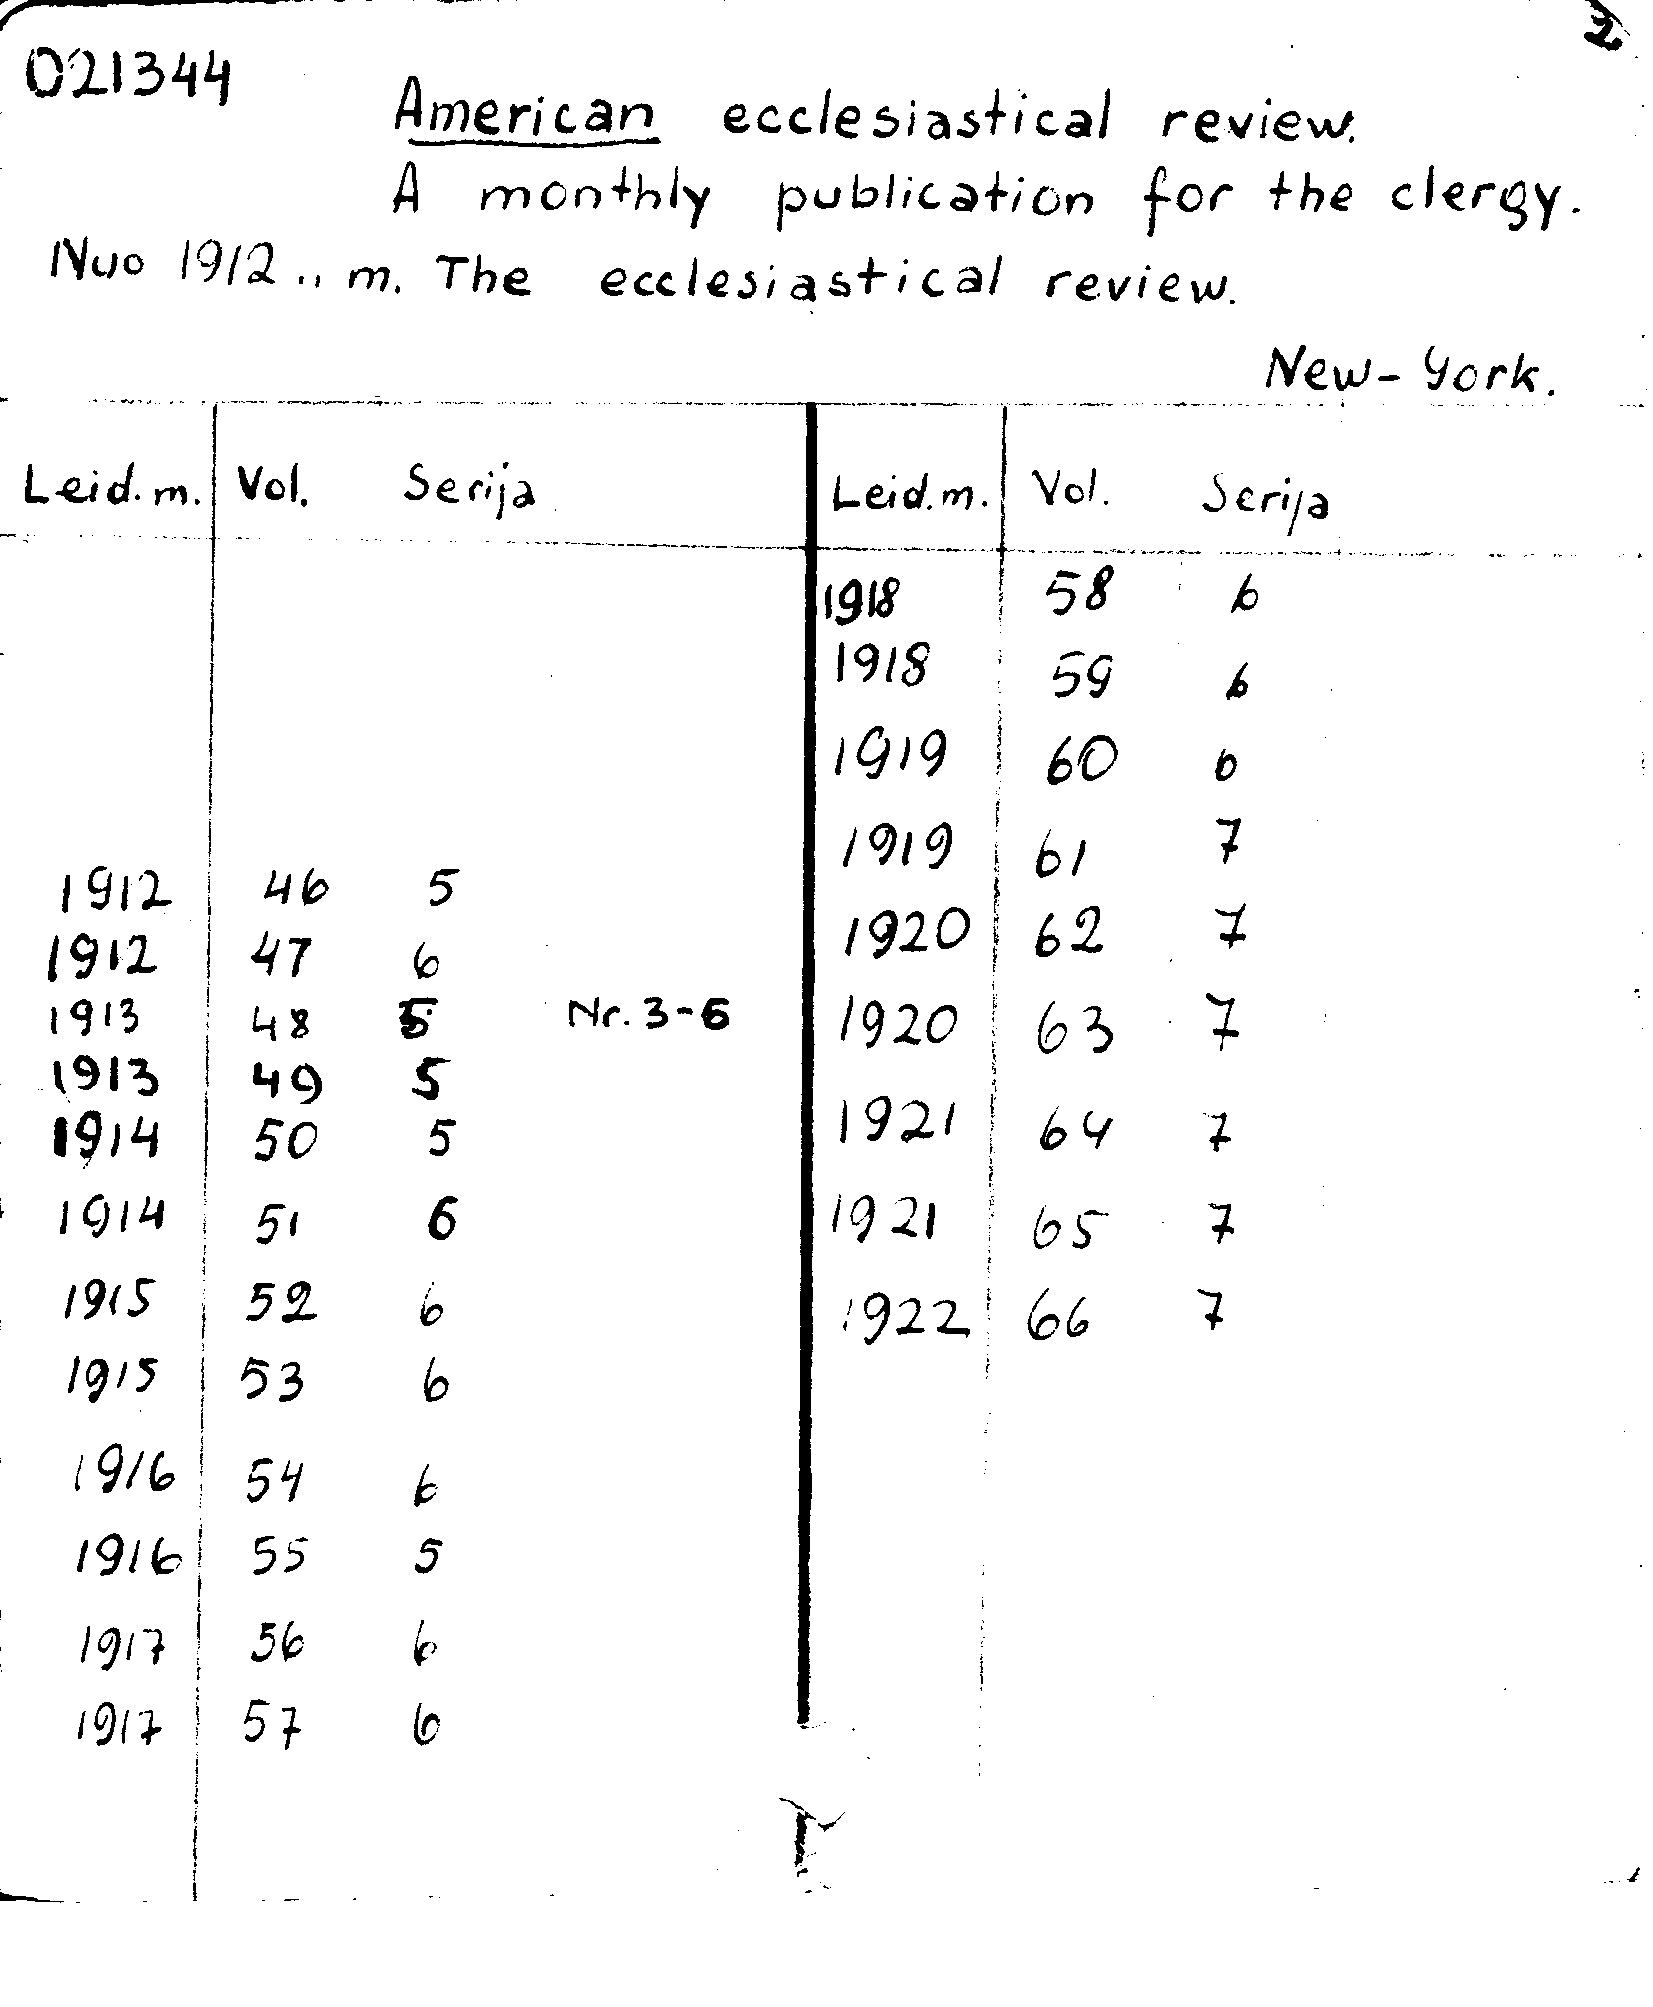 2
021344
American ecclesiastical review.
A monthly publication for the clergy.
Nuo 1912 .. m. The ecclesiastical review.
New-York.
Leid. m. Vol. Serija
1912 46 5
1912 47 6
1913 48 5 Nr. 3-6
1913 49 5
1914 50 5
1914 51 6
1915 52 6
1915 53 6
1916 54 6
1916 55 5
1917 56 6
1917 57 6
Leid. m. Vol. Serija
1918 58 6
1918 59 6
1919 60 6
1919 61 7
1920 62 7
1920 63 7
1921 64 7
1921 65 7
1922 66 7